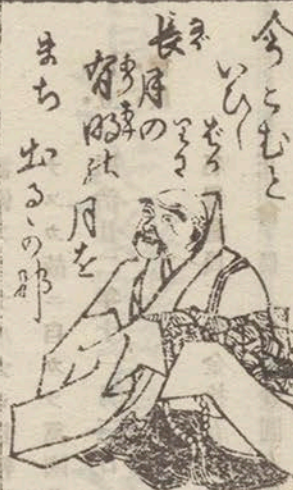 今こむと
いひし
ばか
りに
長月の
有明の月を
まち出るかな